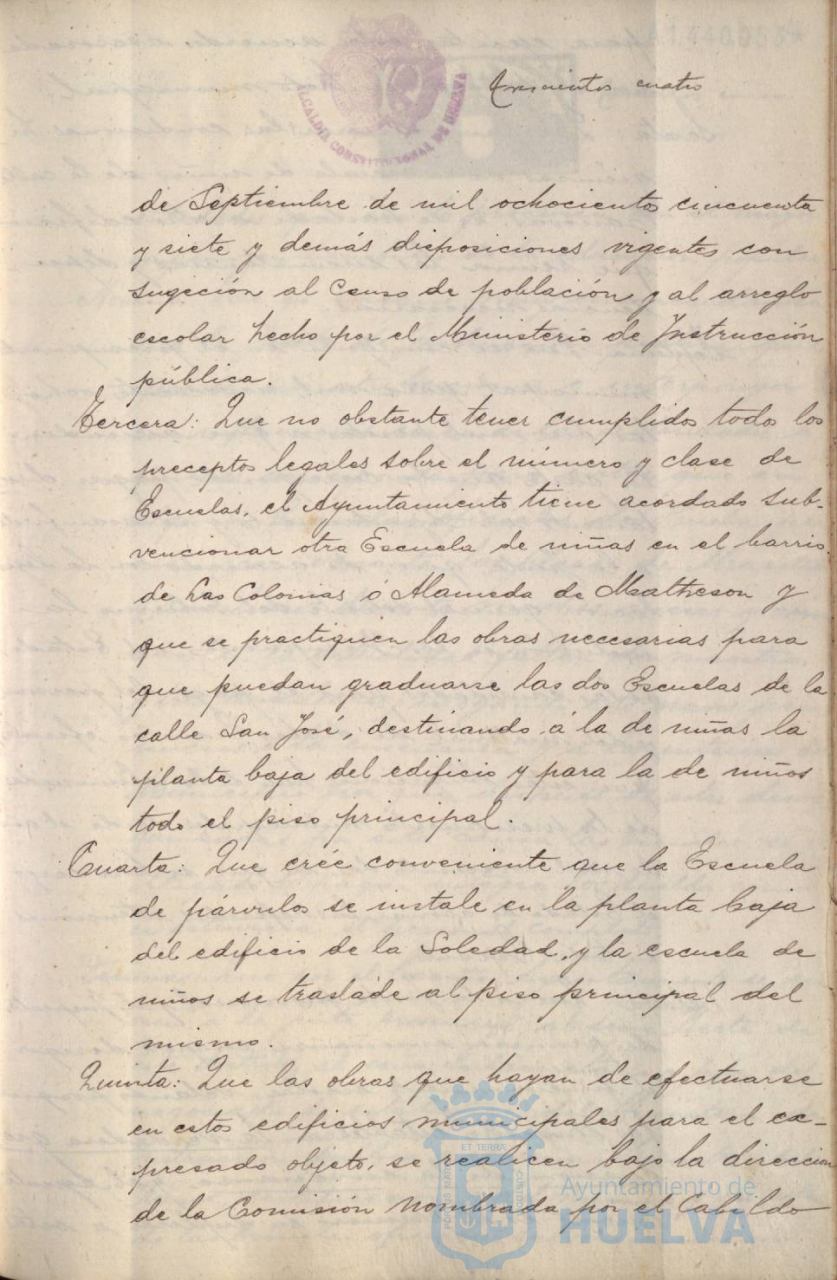 ALCALDIA CONSTITUCIONAL DE HUELVA
Trescientos cuatro
de Septiembre de mil ochocientos cincuenta
y siete y demás disposiciones vigentes con
sugeción al Censo de población y al arreglo
escolar hecho por el Ministerio de Instrucción
pública.
Tercera: Que no obstante tener cumplidos todos los
preceptos legales sobre el número y clase de
Escuelas, el Ayuntamiento tiene acordado sub-
vencionar otra Escuela de niñas en el barrio
de Las Colonias ó Alameda de Matheson y
que se practiquen las obras necesarias para
que puedan graduarse las dos Escuelas de la
calle San José, destinando á la de niñas la
planta baja del edificio y para la de niños
todo el piso principal.
Cuarta: Que crée conveniente que la Escuela
de párvulos se instale en la planta baja
del edificio de la Soledad, y la escuela de
niños se traslade al piso principal del
mismo.
Quinta: Que las obras que hayan de efectuarse
en estos edificios municipales para el ex-
presado objeto, se realicen bajo la dirección
de la Comisión nombrada por el Cabildo
ET TERRÆ
Ayuntamiento de
HUELVA